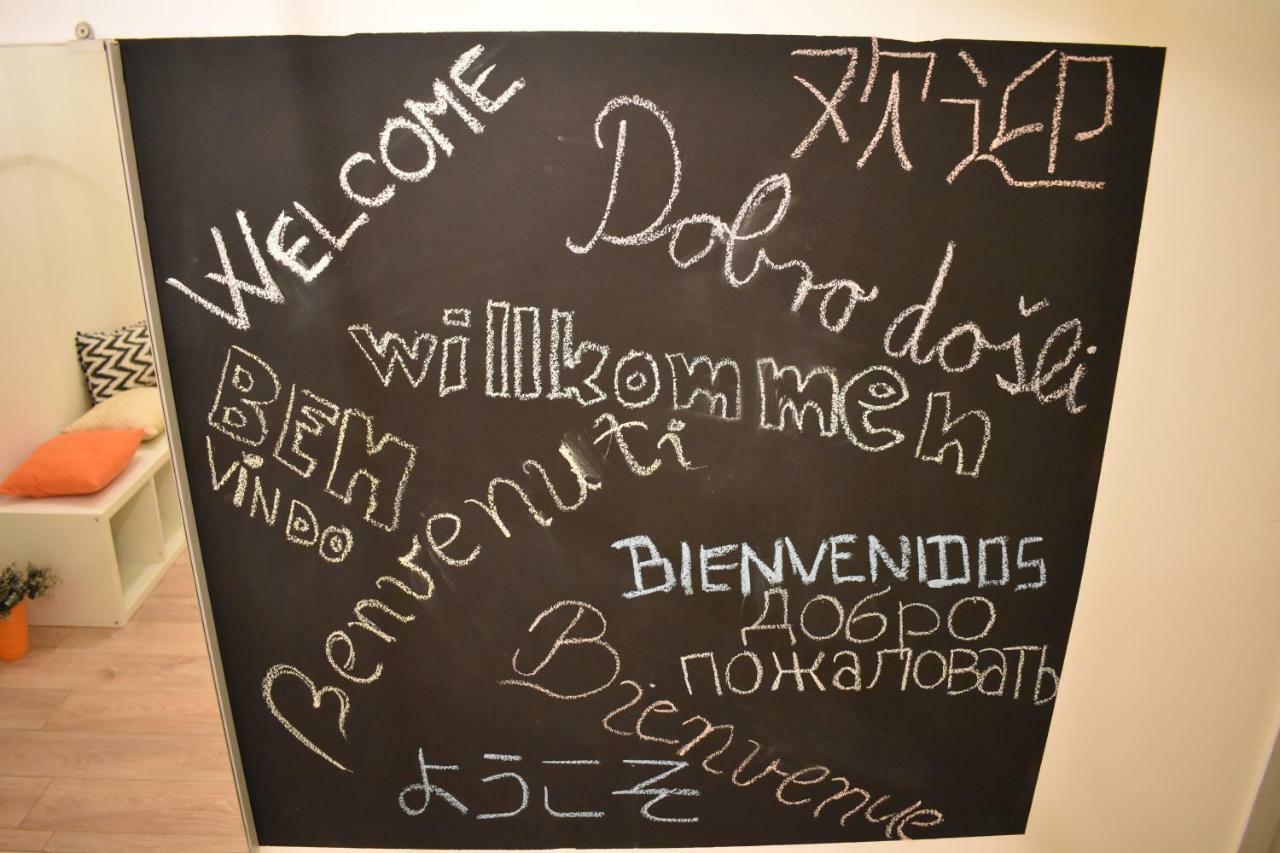 WELCOME
欢迎
Dobro došli
willkommen
BEM
VINDO
Benvenuti
BIENVENIDOS
Добро
пожаловать
Bienvenue
ようこそ